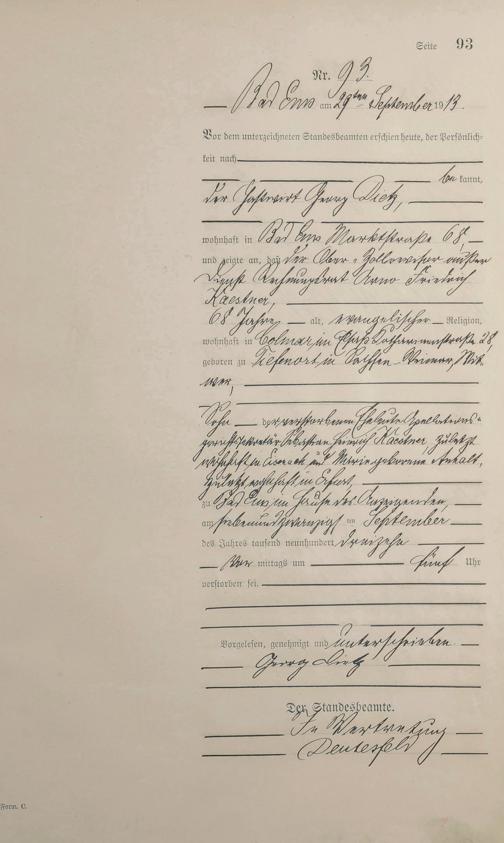 Seite 93
Nr. 93.
Bad Ems am 29ten September 1913.
Vor dem unterzeichneten Standesbeamten erschien heute, der Persönlich-
keit nach
bekannt,
der Gastwirt Georg Dietz,
wohnhaft in Bad Ems Marktstraße 68,
und zeigte an, daß der Ober-Zollrevisor außer
Dienst Rechnungsrat Arno Friedrich
Kaestner,
68 Jahre alt, evangelischer Religion,
wohnhaft in Colmar im Elsaß Katharinenstraße 28,
geboren zu Tiefenort in Sachsen-Weimar, Wit
wer,
Sohn der verstorbenen Eheleute Appellations-
gerichtssekretär Sebastian Heinrich Kaestner, zuletzt
wohnhaft in Eisenach und Marie geborene Anhalt,
zuletzt wohnhaft in Erfurt,
zu Bad Ems im Hause des Anzeigenden,
am siebenundzwanzigsten September
des Jahres tausend neunhundert dreizehn
Vor mittags um fünf Uhr
verstorben sei.
Vorgelesen, genehmigt und unterschrieben
Georg Dietz
Der Standesbeamte.
In Vertretung
Form. C.